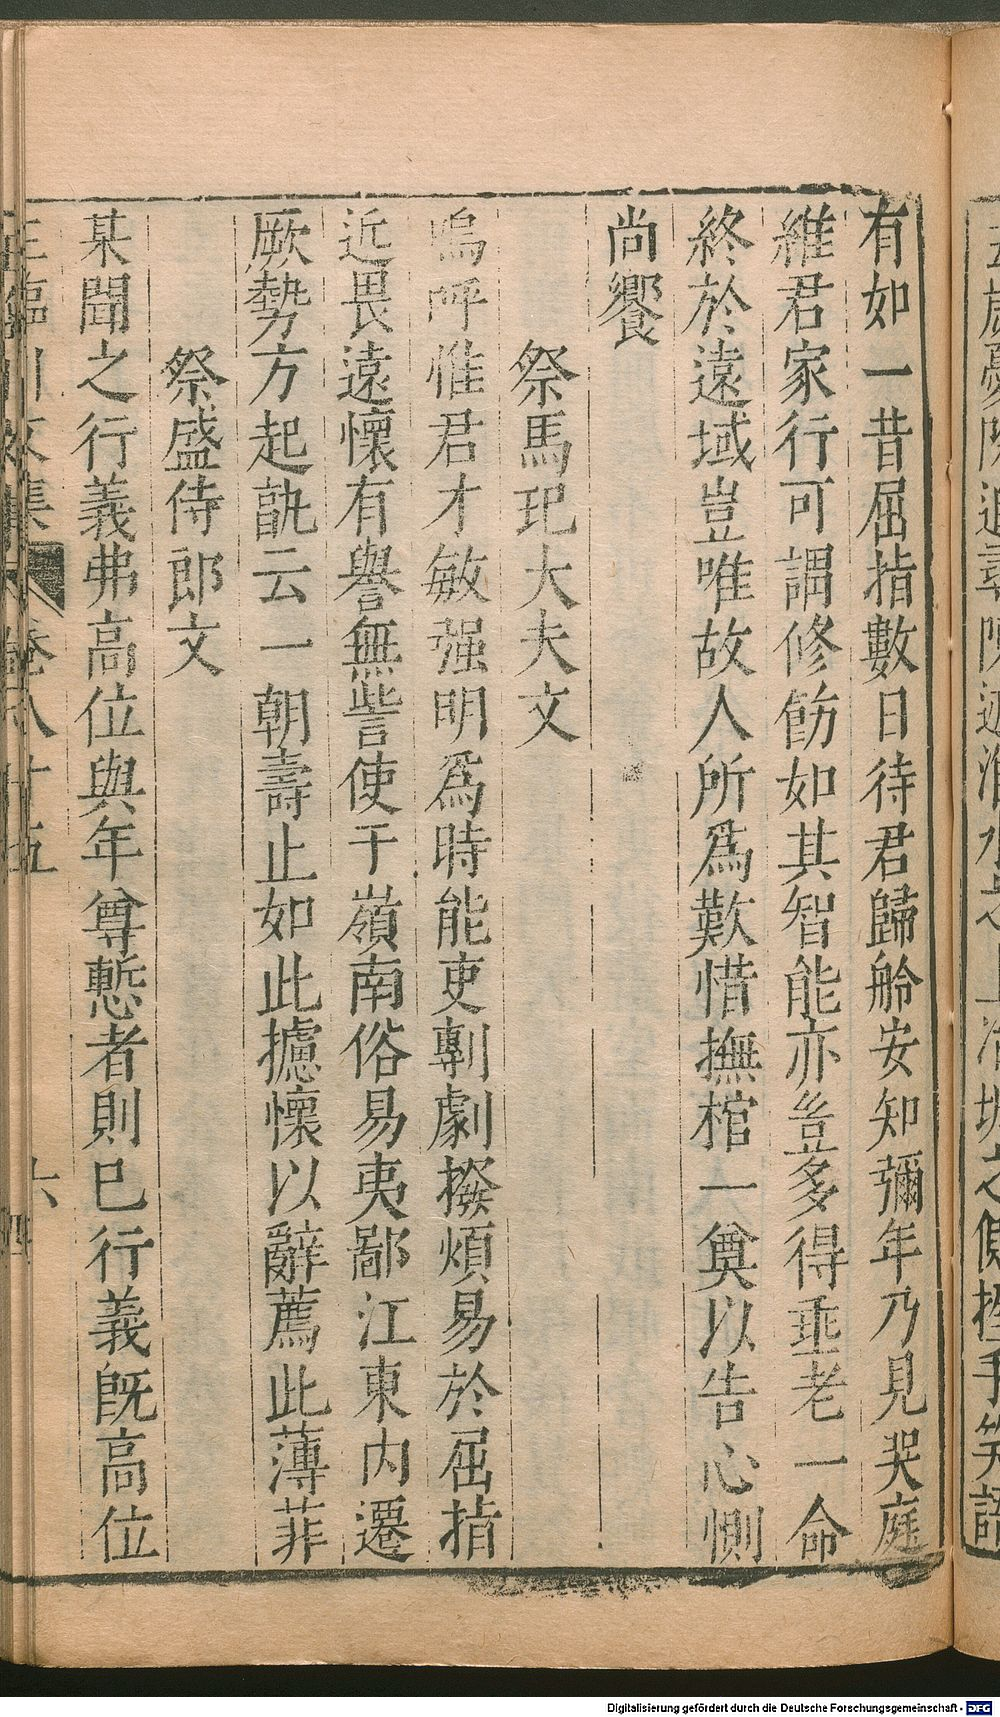 有如一昔屈指數日待君歸舲安知彌年乃見哭庭
維君家行可謂修飭如其智能亦豈多得垂老一命
終於遠域豈唯故人所爲歎惜撫棺一奠以告心惻
尚饗
祭馬玘大夫文
嗚呼惟君才敏强明爲時能吏剸劇撥煩易於屈指
近畏遠懷有譽無訾使于嶺南俗易夷鄙江東内遷
厥勢方起孰云一朝壽止如此攄懷以辭薦此薄菲
祭盛侍郎文
某聞之行義弗高位與年尊慙者則已行義旣高位
王臨川文集 卷八十五 六
Digitalisierung gefördert durch die Deutsche Forschungsgemeinschaft - DFG